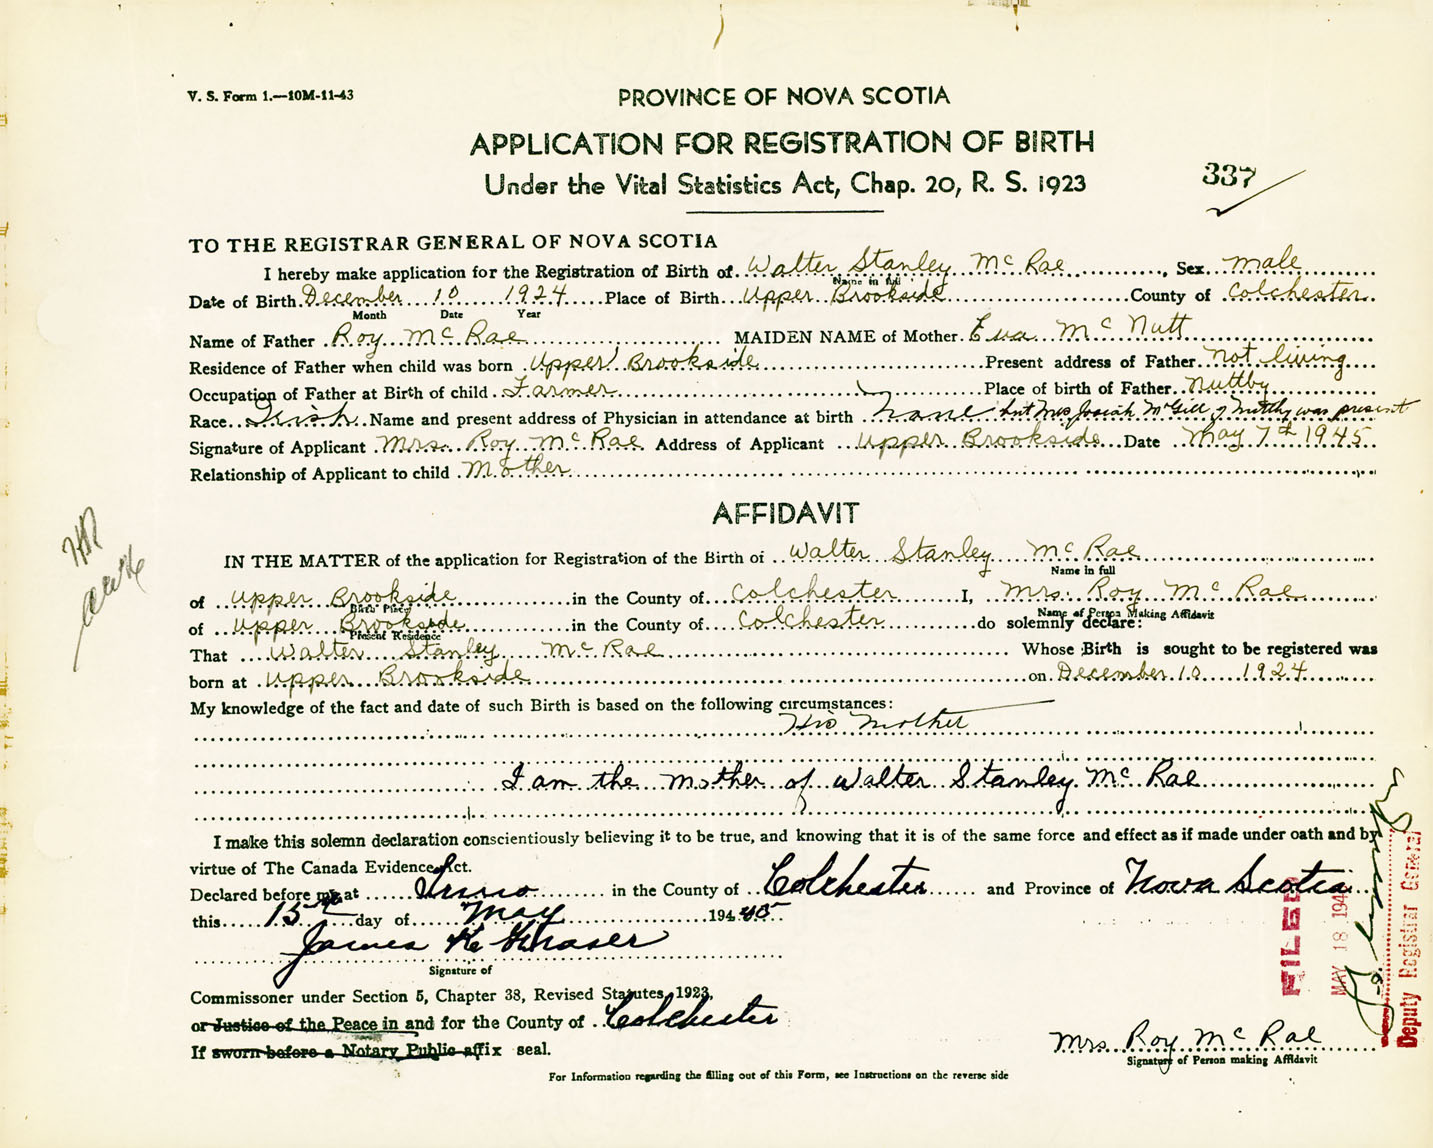 V. S. Form 1.—10M-11-43
PROVINCE OF NOVA SCOTIA
APPLICATION FOR REGISTRATION OF BIRTH
Under the Vital Statistics Act, Chap. 20, R. S. 1923
337
TO THE REGISTRAR GENERAL OF NOVA SCOTIA
I hereby make application for the Registration of Birth of Walter Stanley McRae, Sex male
Name in full
Date of Birth December 10 1924 Place of Birth Upper Brookside County of Colchester
Month Date Year
Name of Father Roy McRae MAIDEN NAME of Mother Eva McNutt
Residence of Father when child was born Upper Brookside Present address of Father not living
Occupation of Father at Birth of child Farmer Place of birth of Father Nuttby
Race Irish Name and present address of Physician in attendance at birth none but Mrs Josiah McGill of Nuttby was present
Signature of Applicant Mrs. Roy McRae Address of Applicant Upper Brookside Date May 7th 1945
Relationship of Applicant to child Mother
AFFIDAVIT
IN THE MATTER of the application for Registration of the Birth of Walter Stanley McRae
Name in full
of Upper Brookside in the County of Colchester I, Mrs. Roy McRae
Birth Place Name of Person Making Affidavit
of Upper Brookside in the County of Colchester do solemnly declare:
Present Residence
That Walter Stanley McRae Whose Birth is sought to be registered was
born at Upper Brookside on December 10 1924
My knowledge of the fact and date of such Birth is based on the following circumstances:
His Mother
I am the mother of Walter Stanley McRae
I make this solemn declaration conscientiously believing it to be true, and knowing that it is of the same force and effect as if made under oath and by
virtue of The Canada Evidence Act.
Declared before me at Truro in the County of Colchester and Province of Nova Scotia
this 15th day of May 194 45
James K. Fraser
Signature of
Commissoner under Section 5, Chapter 38, Revised Statutes, 1923,
or Justice of the Peace in and for the County of Colchester
If sworn before a Notary Public affix seal.
Mrs Roy McRae
Signature of Person making Affidavit
For Information regarding the filling out of this Form, see Instructions on the reverse side
FILED
MAY 18 194
Deputy Registrar General